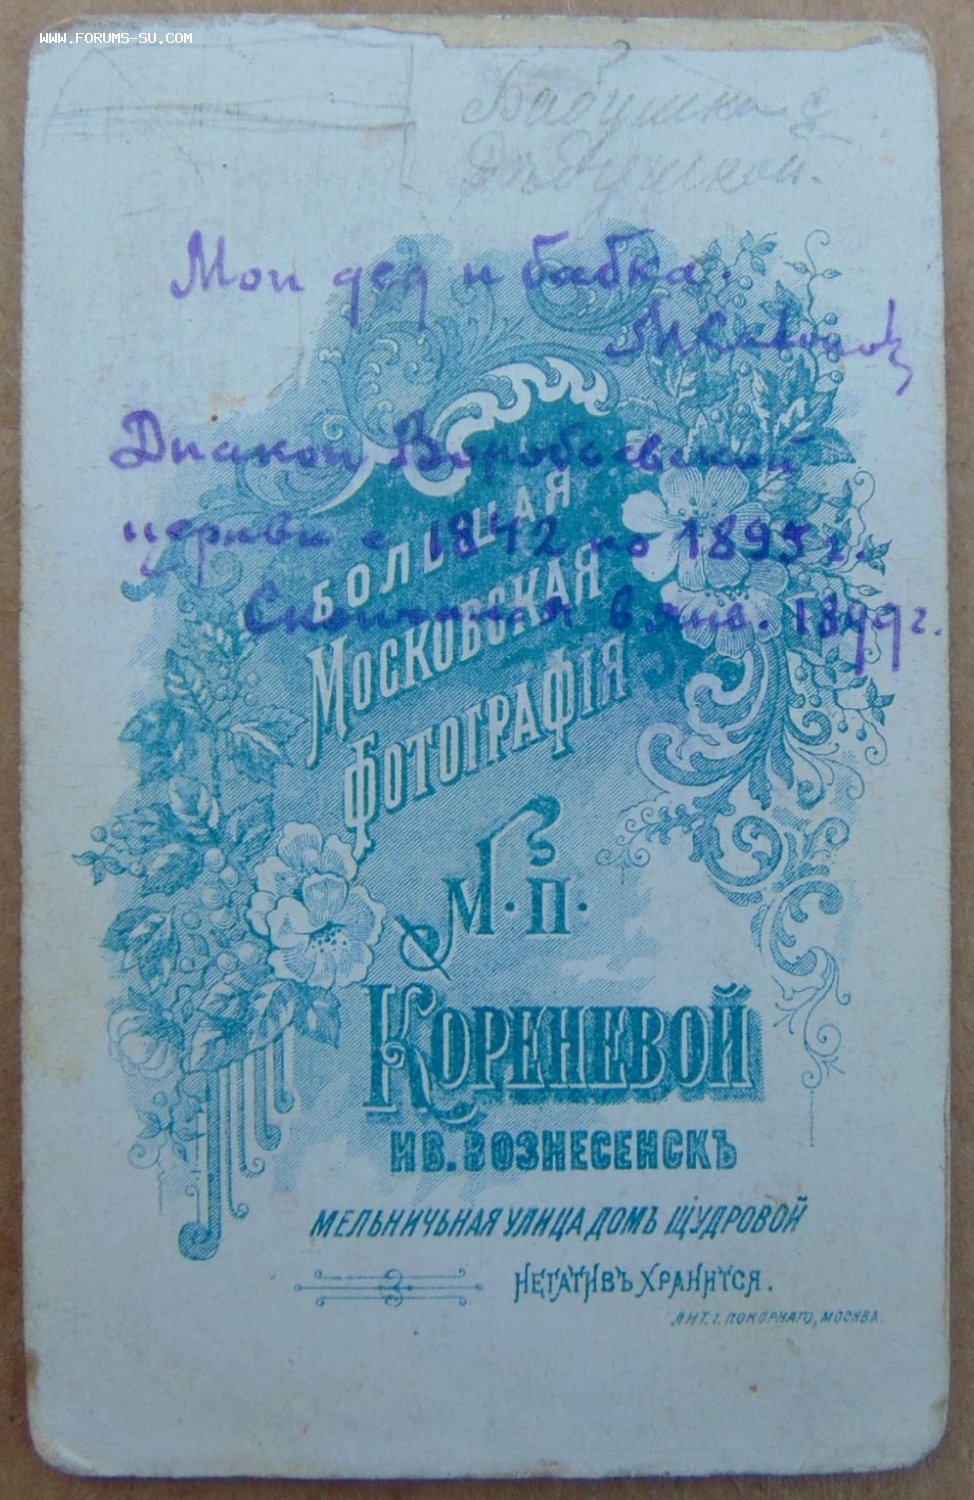 WWW.FORUMS-SU.COM
Бабушка с
Дѣдушкой.
Мои дед и бабка.
Диакон Воробьевской
церкви с 1842 по 1895 г.
Скончался в янв. 1899 г.
БОЛЬШАЯ
МОСКОВСКАЯ
ФОТОГРАФІЯ
М. П.
КОРЕНЕВОЙ
ИВ. ВОЗНЕСЕНСКЪ
МЕЛЬНИЧЬНАЯ УЛИЦА ДОМЪ ЩУДРОВОЙ
НЕГАТИВЪ ХРАНИТСЯ.
ЛИТ. І. ПОКОРНАГО, МОСКВА.